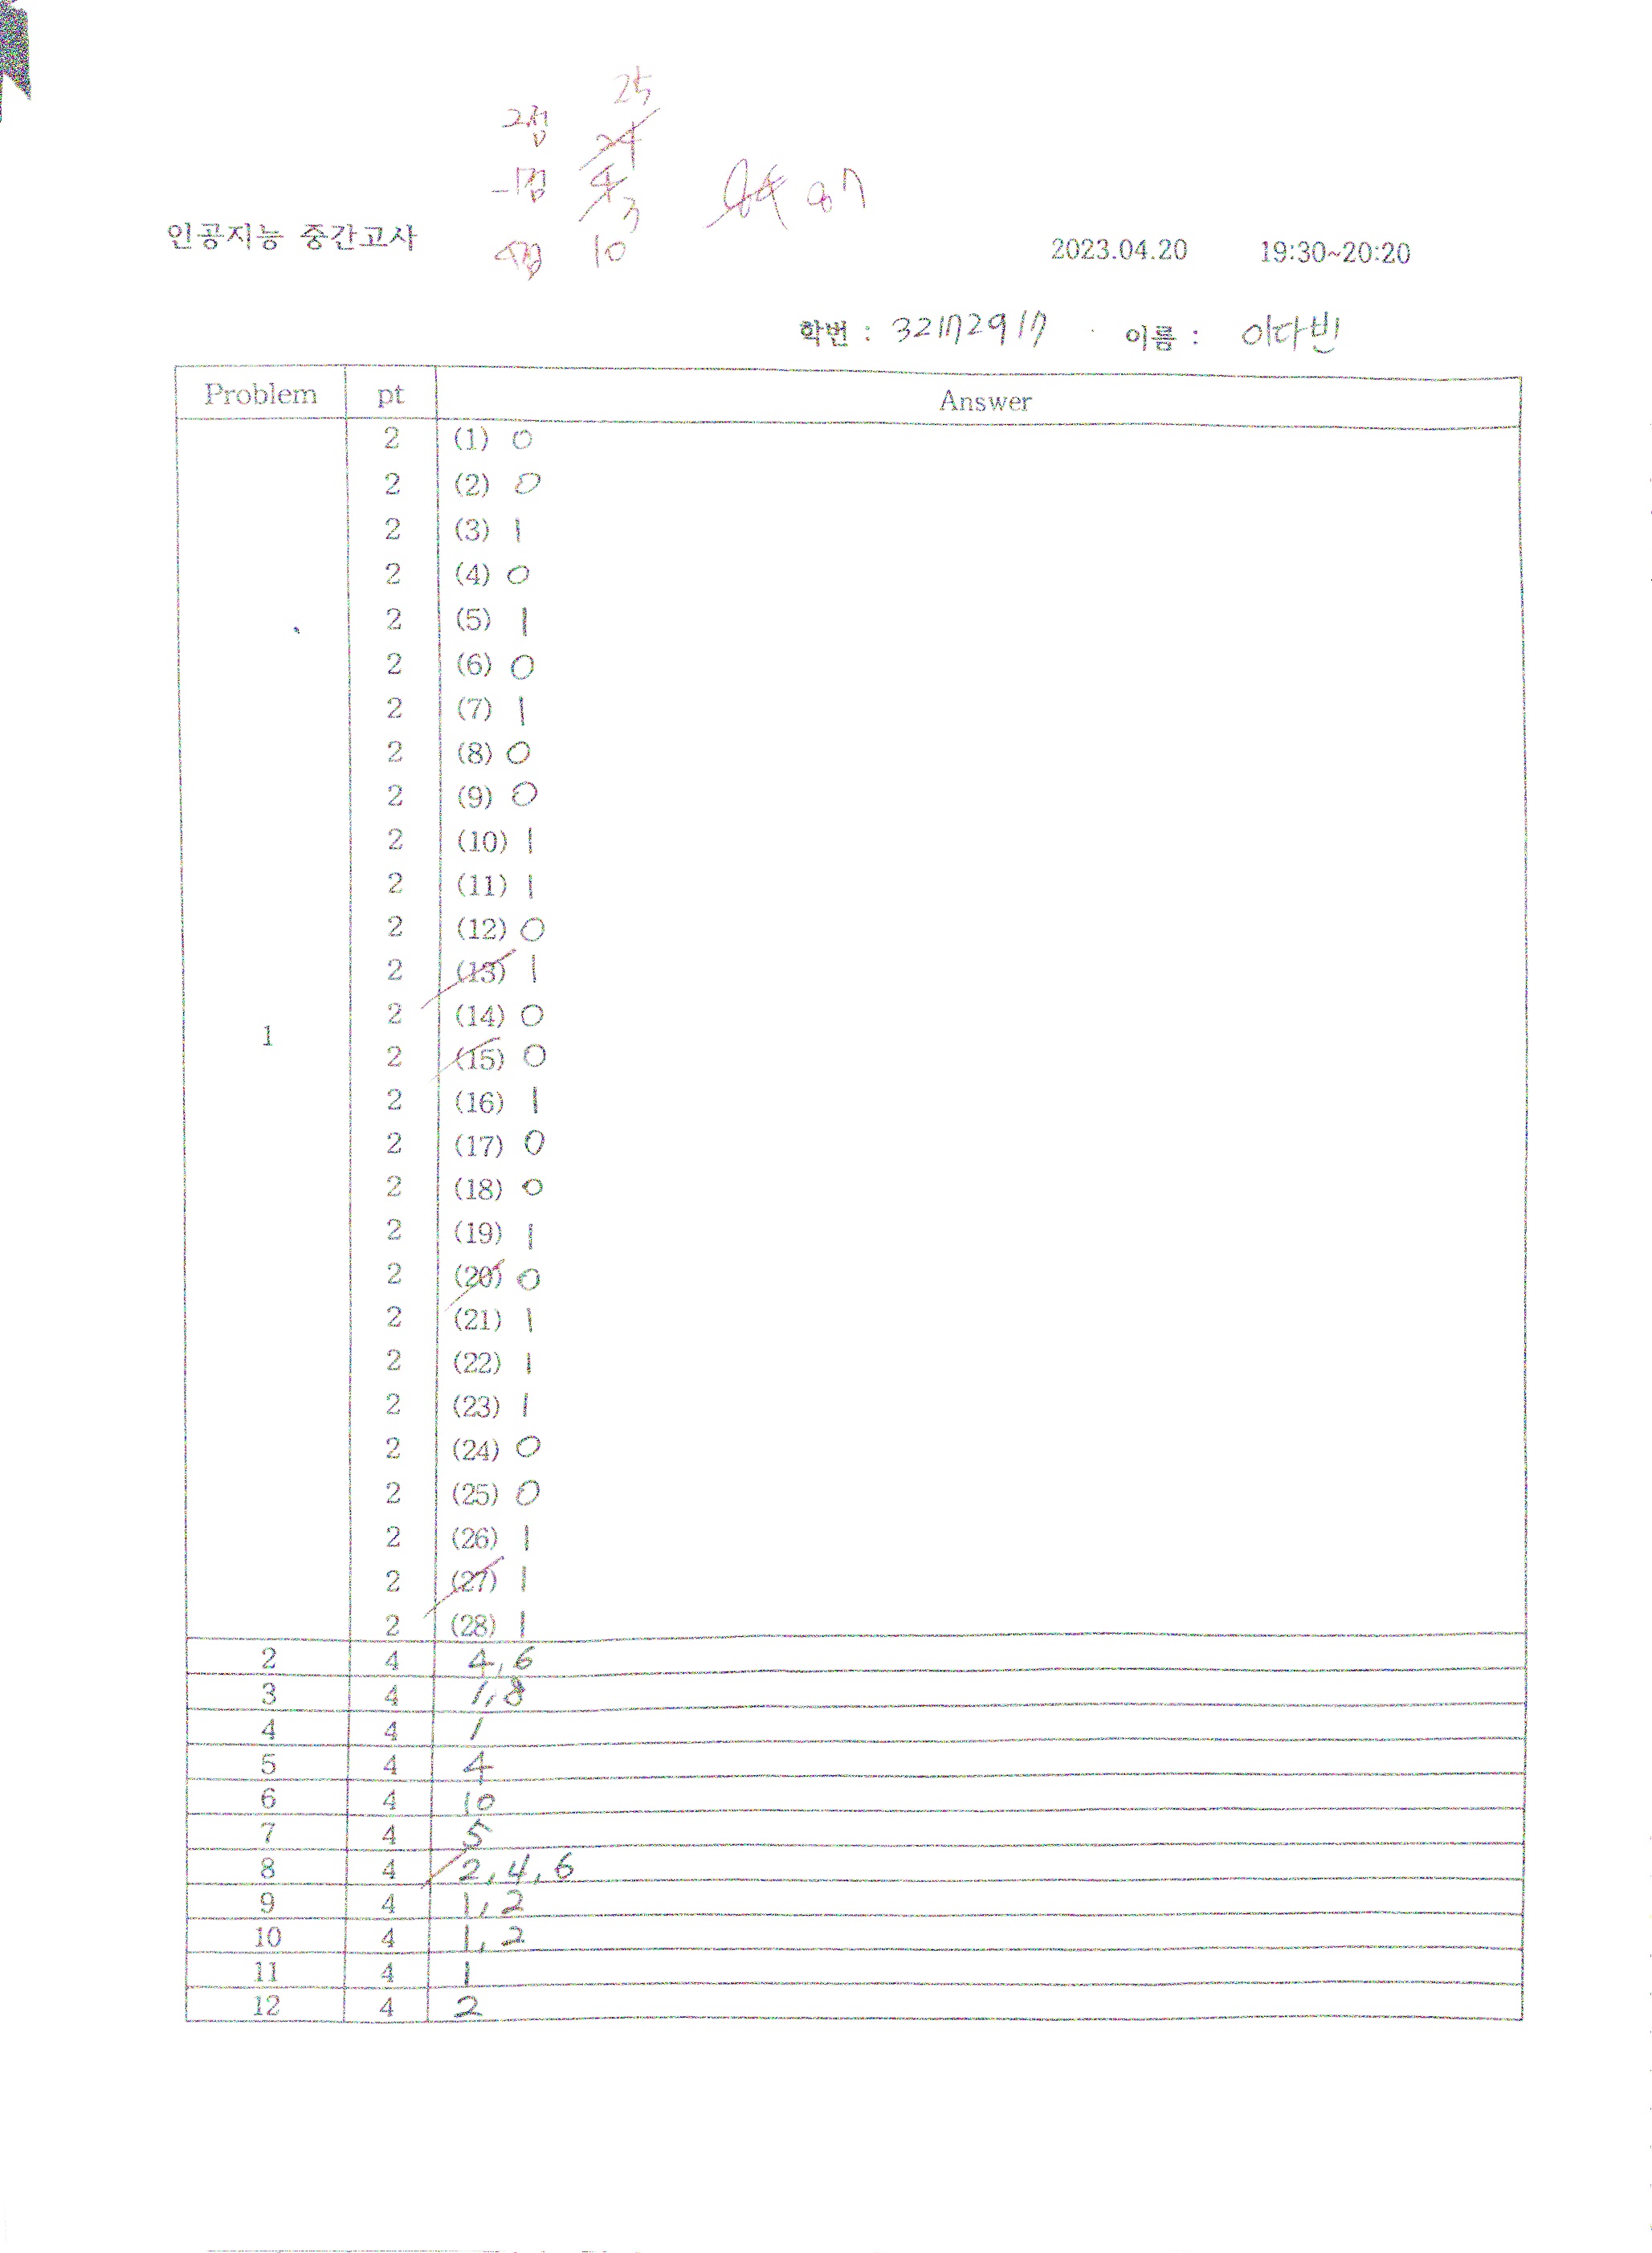 25
2점 24
-1점 4
3
84 87
4점 10
인공지능 중간고사
2023.04.20 19:30~20:20
학번 : 32172917 이름 : 이다빈
Problem pt Answer
2 (1) 0
2 (2) 0
2 (3) 1
2 (4) 0
2 (5) 1
2 (6) 0
2 (7) 1
2 (8) 0
2 (9) 0
2 (10) 1
2 (11) 1
2 (12) 0
2 (13) 1
2 (14) 0
1
2 (15) 0
2 (16) 1
2 (17) 0
2 (18) 0
2 (19) 1
2 (20) 0
2 (21) 1
2 (22) 1
2 (23) 1
2 (24) 0
2 (25) 0
2 (26) 1
2 (27) 1
2 (28) 1
2 4 4,6
3 4 1,8
4 4 1
5 4 4
6 4 10
7 4 5
8 4 2,4,6
9 4 1,2
10 4 1,2
11 4 1
12 4 2